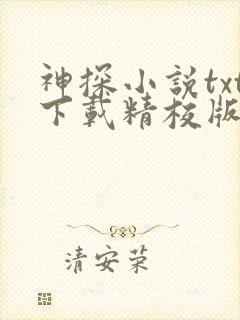 神探小說txt
下載精校版
清安荣